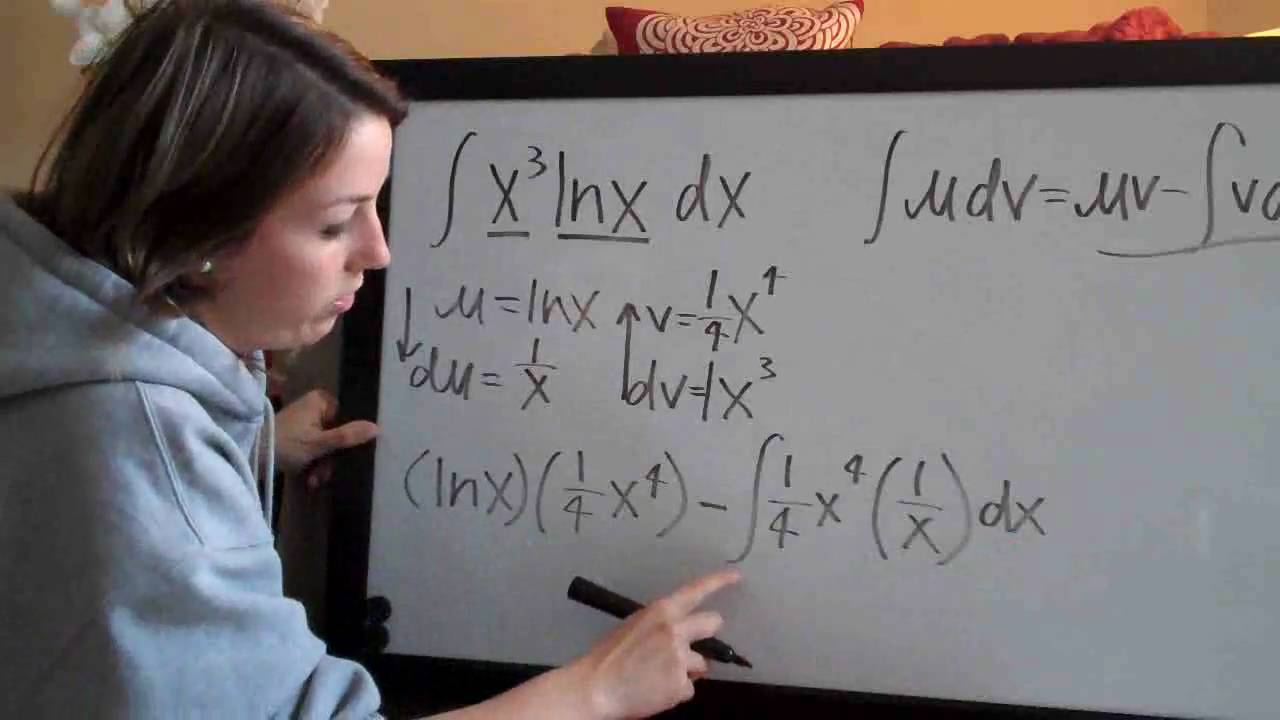 ∫ x³ lnx dx  ∫ μdv = μv - ∫ v
μ = lnx  v = 1/4 x⁴
du = 1/x  dv = 1x³
(lnx)(1/4 x⁴) - ∫ 1/4 x⁴ (1/x) dx